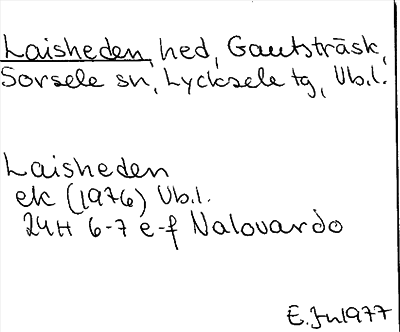 Laisheden, hed, Gautsträsk,
Sorsele sn, Lycksele tg, Vb.l.
Laisheden
ek (1976) Vb.l.
24H 6-7 e-f Nalovardo
E. Jn 1977